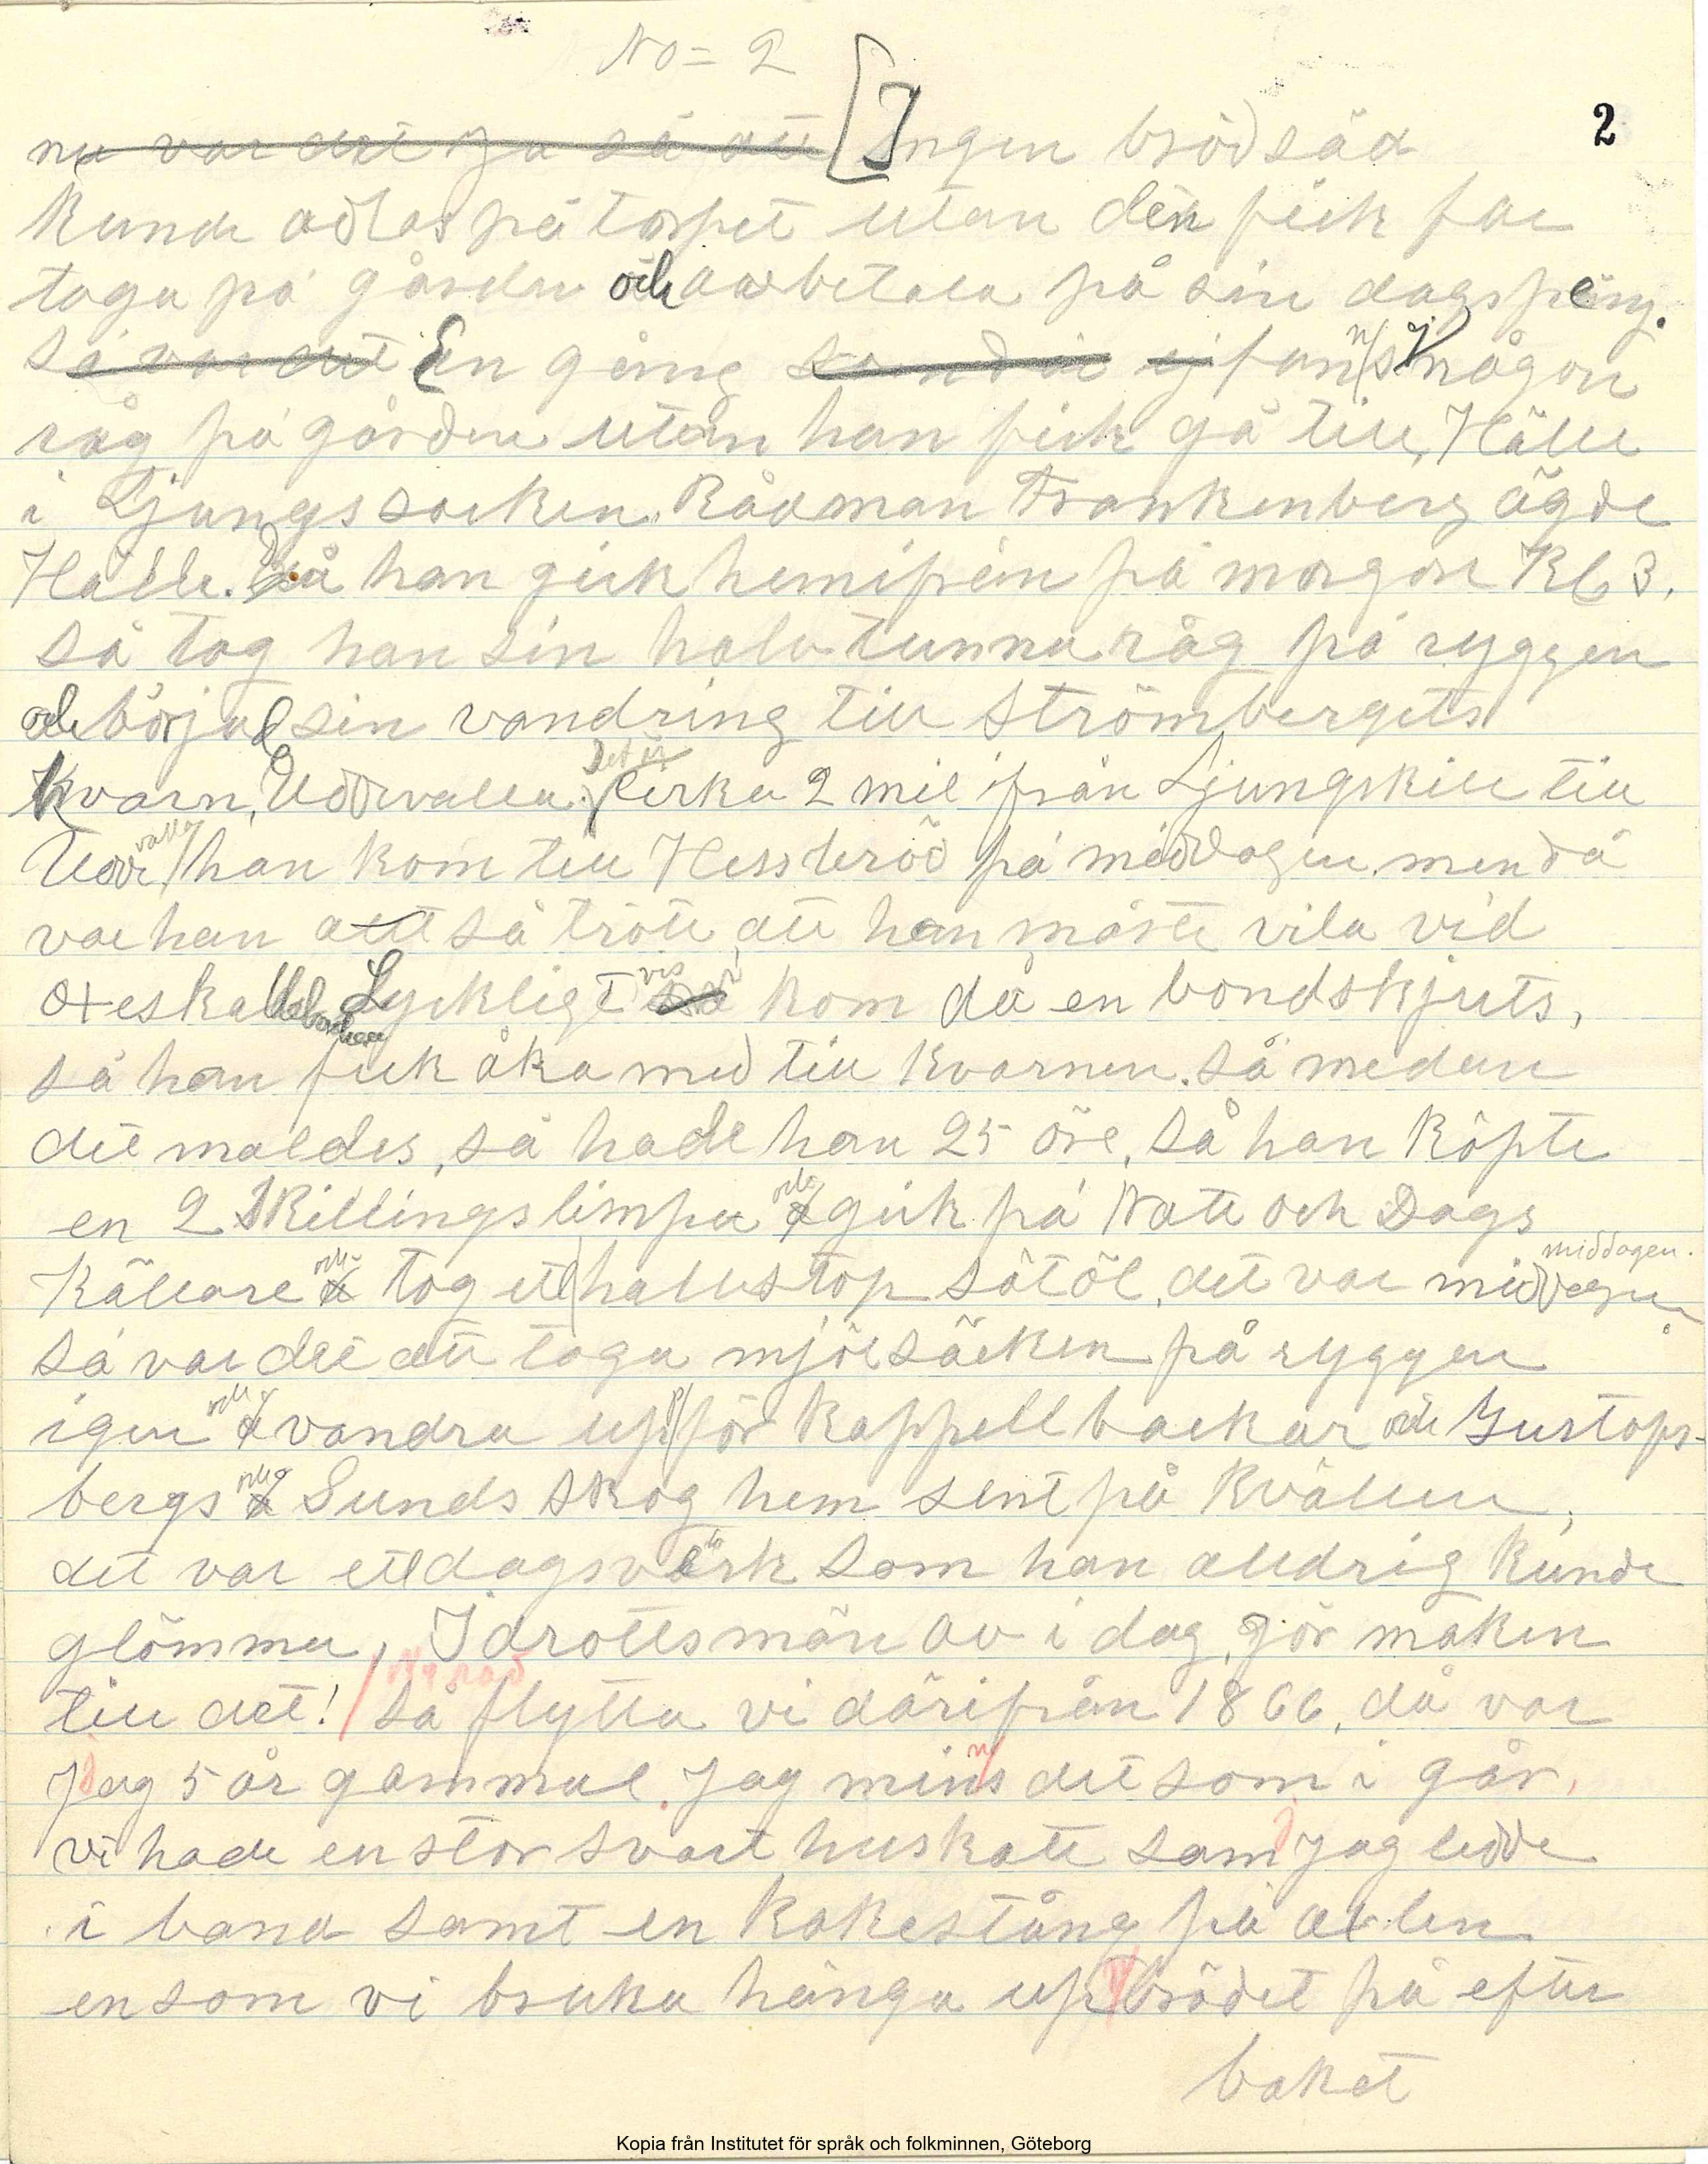 No = 2
2
nu var det ju så att [Ingen brödsäd
kunde odlas på torpet utan den fick far
taga på gården och avbetala på sin dagspäng.
Så var det En gång ej fanns någon
råg på gården utan han fick gå till Hälle
i Ljungs socken. Rådman Frankenberg ägde
Hälle. Då han gick hemifrån på morgon Kl 3.
så tog han sin halvtunna råg på ryggen
och börjad sin vandring till Strömbergets
Kvarn, Uddevalla. Det är Cirka 2 mil ifrån Ljungskile till
Uddevalla han kom till Hessleröd på middagen men då
var han att så trött att han måste vila vid
Oxeskallebacken Lyckligtvis kom då en bondskjuts,
så han fick åka med till Kvarnen. Så medan
det maldes, så hade han 25 öre, så han köpte
en 2 Skillingslimpa och gick på Natt och Dags
Källare och tog ett halvstop sötöl, det var middagen middagen.
så var det att taga mjölsäcken på ryggen
igen och vandra uppför Kappellbackar och Gustafs-
bergs och Sunds skog hem sent på Kvällen,
det var ett dagsvärk som han alldrig kunde
glömma, Idrottsmän av i dag, gör maken
till det! så flytta vi därifrån 1866, då var
jag 5 år gammal. Jag minns det som i går,
vi hade en stor svart huskatt som jag ledde
i band samt en Kakestång på axlen
en som vi bruka hänga upp brödet på efter
baket
Kopia från Institutet för språk och folkminnen, Göteborg